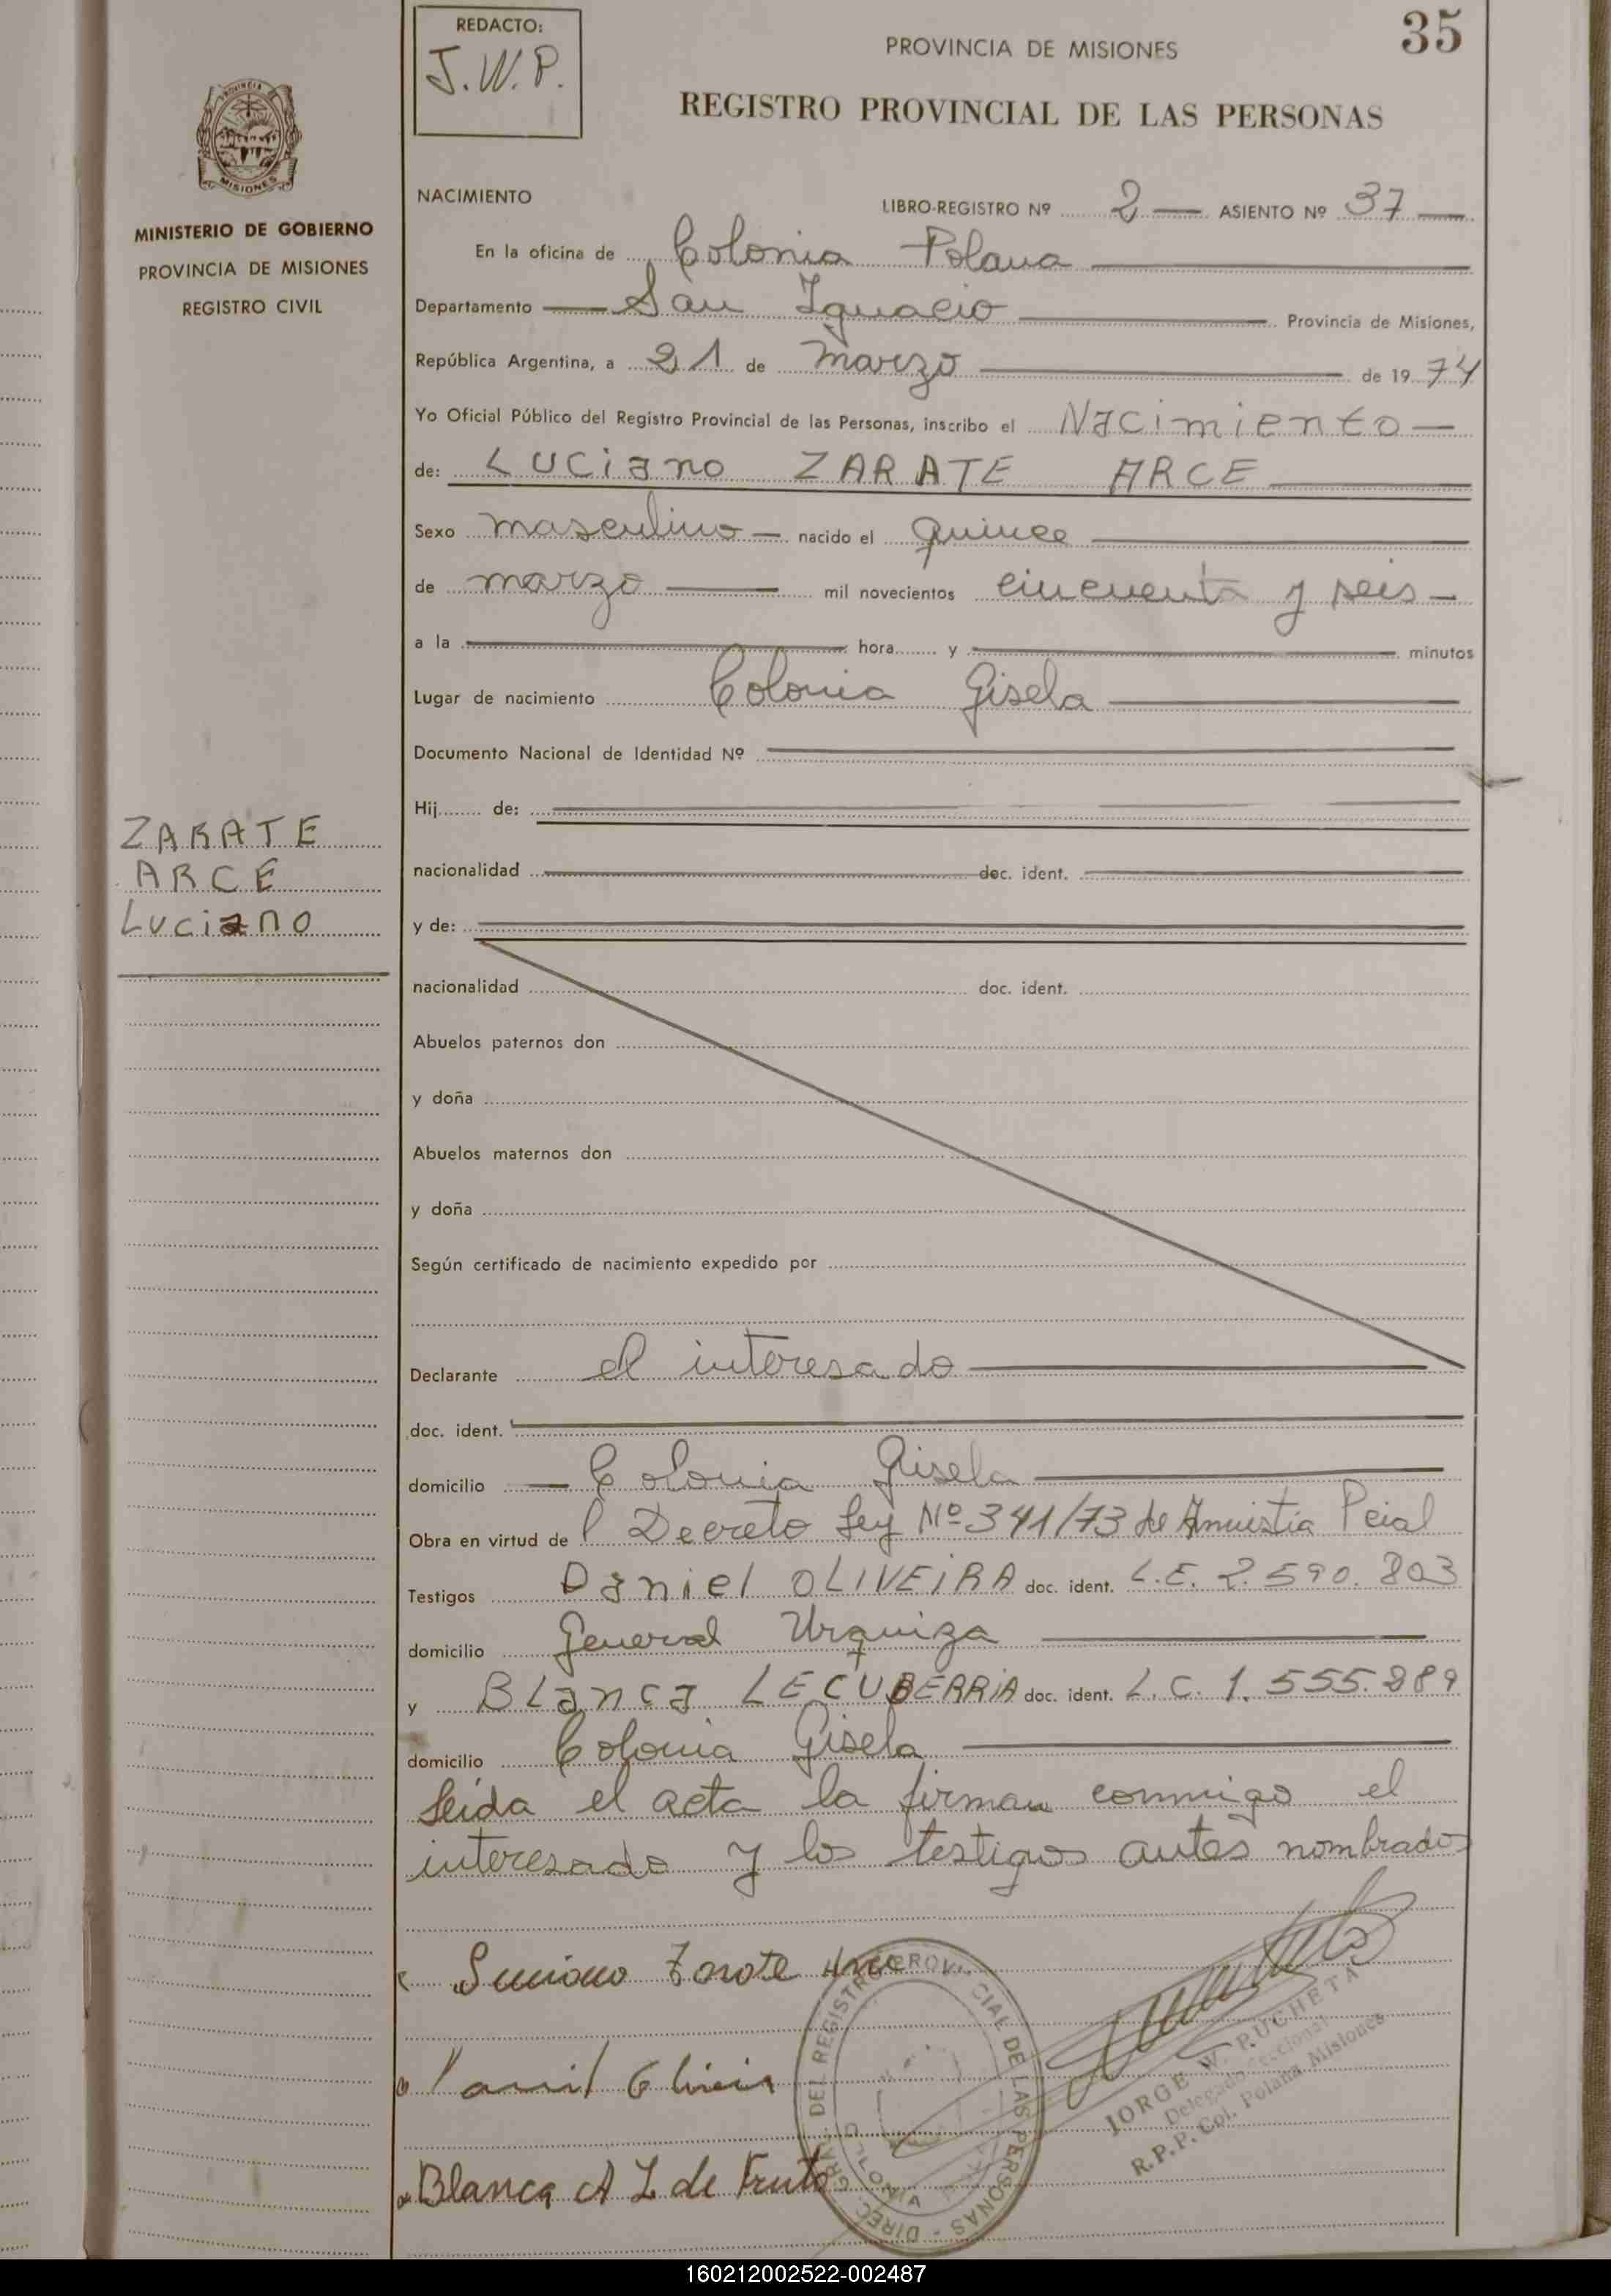 35
REDACTO:
J.W.P.
PROVINCIA DE MISIONES
REGISTRO PROVINCIAL DE LAS PERSONAS
PROVINCIA DE
MISIONES
MINISTERIO DE GOBIERNO
PROVINCIA DE MISIONES
REGISTRO CIVIL
ZARATE
ARCE
Luciano
NACIMIENTO
LIBRO-REGISTRO Nº 2 — ASIENTO Nº 37 —
En la oficina de Colonia Polana
Departamento — San Ignacio — Provincia de Misiones,
República Argentina, a 21 de marzo — de 1974
Yo Oficial Público del Registro Provincial de las Personas, inscribo el Nacimiento —
de: Luciano ZARATE ARCE
Sexo masculino — nacido el quince
de marzo — mil novecientos cincuenta y seis —
a la hora y minutos
Lugar de nacimiento Colonia Gisela
Documento Nacional de Identidad Nº
Hij de:
nacionalidad doc. ident.
y de:
nacionalidad doc. ident.
Abuelos paternos don
y doña
Abuelos maternos don
y doña
Según certificado de nacimiento expedido por
Declarante el interesado
doc. ident.
domicilio — Colonia Gisela
Obra en virtud de l Decreto Ley Nº 341/73 de Amnistia Pcial
Testigos Daniel OLIVEIRA doc. ident. L.E. 2.590.803
domicilio General Urquiza
y BLanca LECUBERRIA doc. ident. L.C. 1.555.989
domicilio Colonia Gisela
Leída el acta la firman conmigo el
interesado y los testigos antes nombrados
Luciano Zarate Arce
Daniel Oliveira
Blanca A L de Fruto
DEL REGISTRO PROVINCIAL DE LAS PERSONAS - DIREC. GRAL.
JORGE W. PUCHETA
Delegado Seccional
R.P.P. Col. Polana Misiones
160212002522-002487